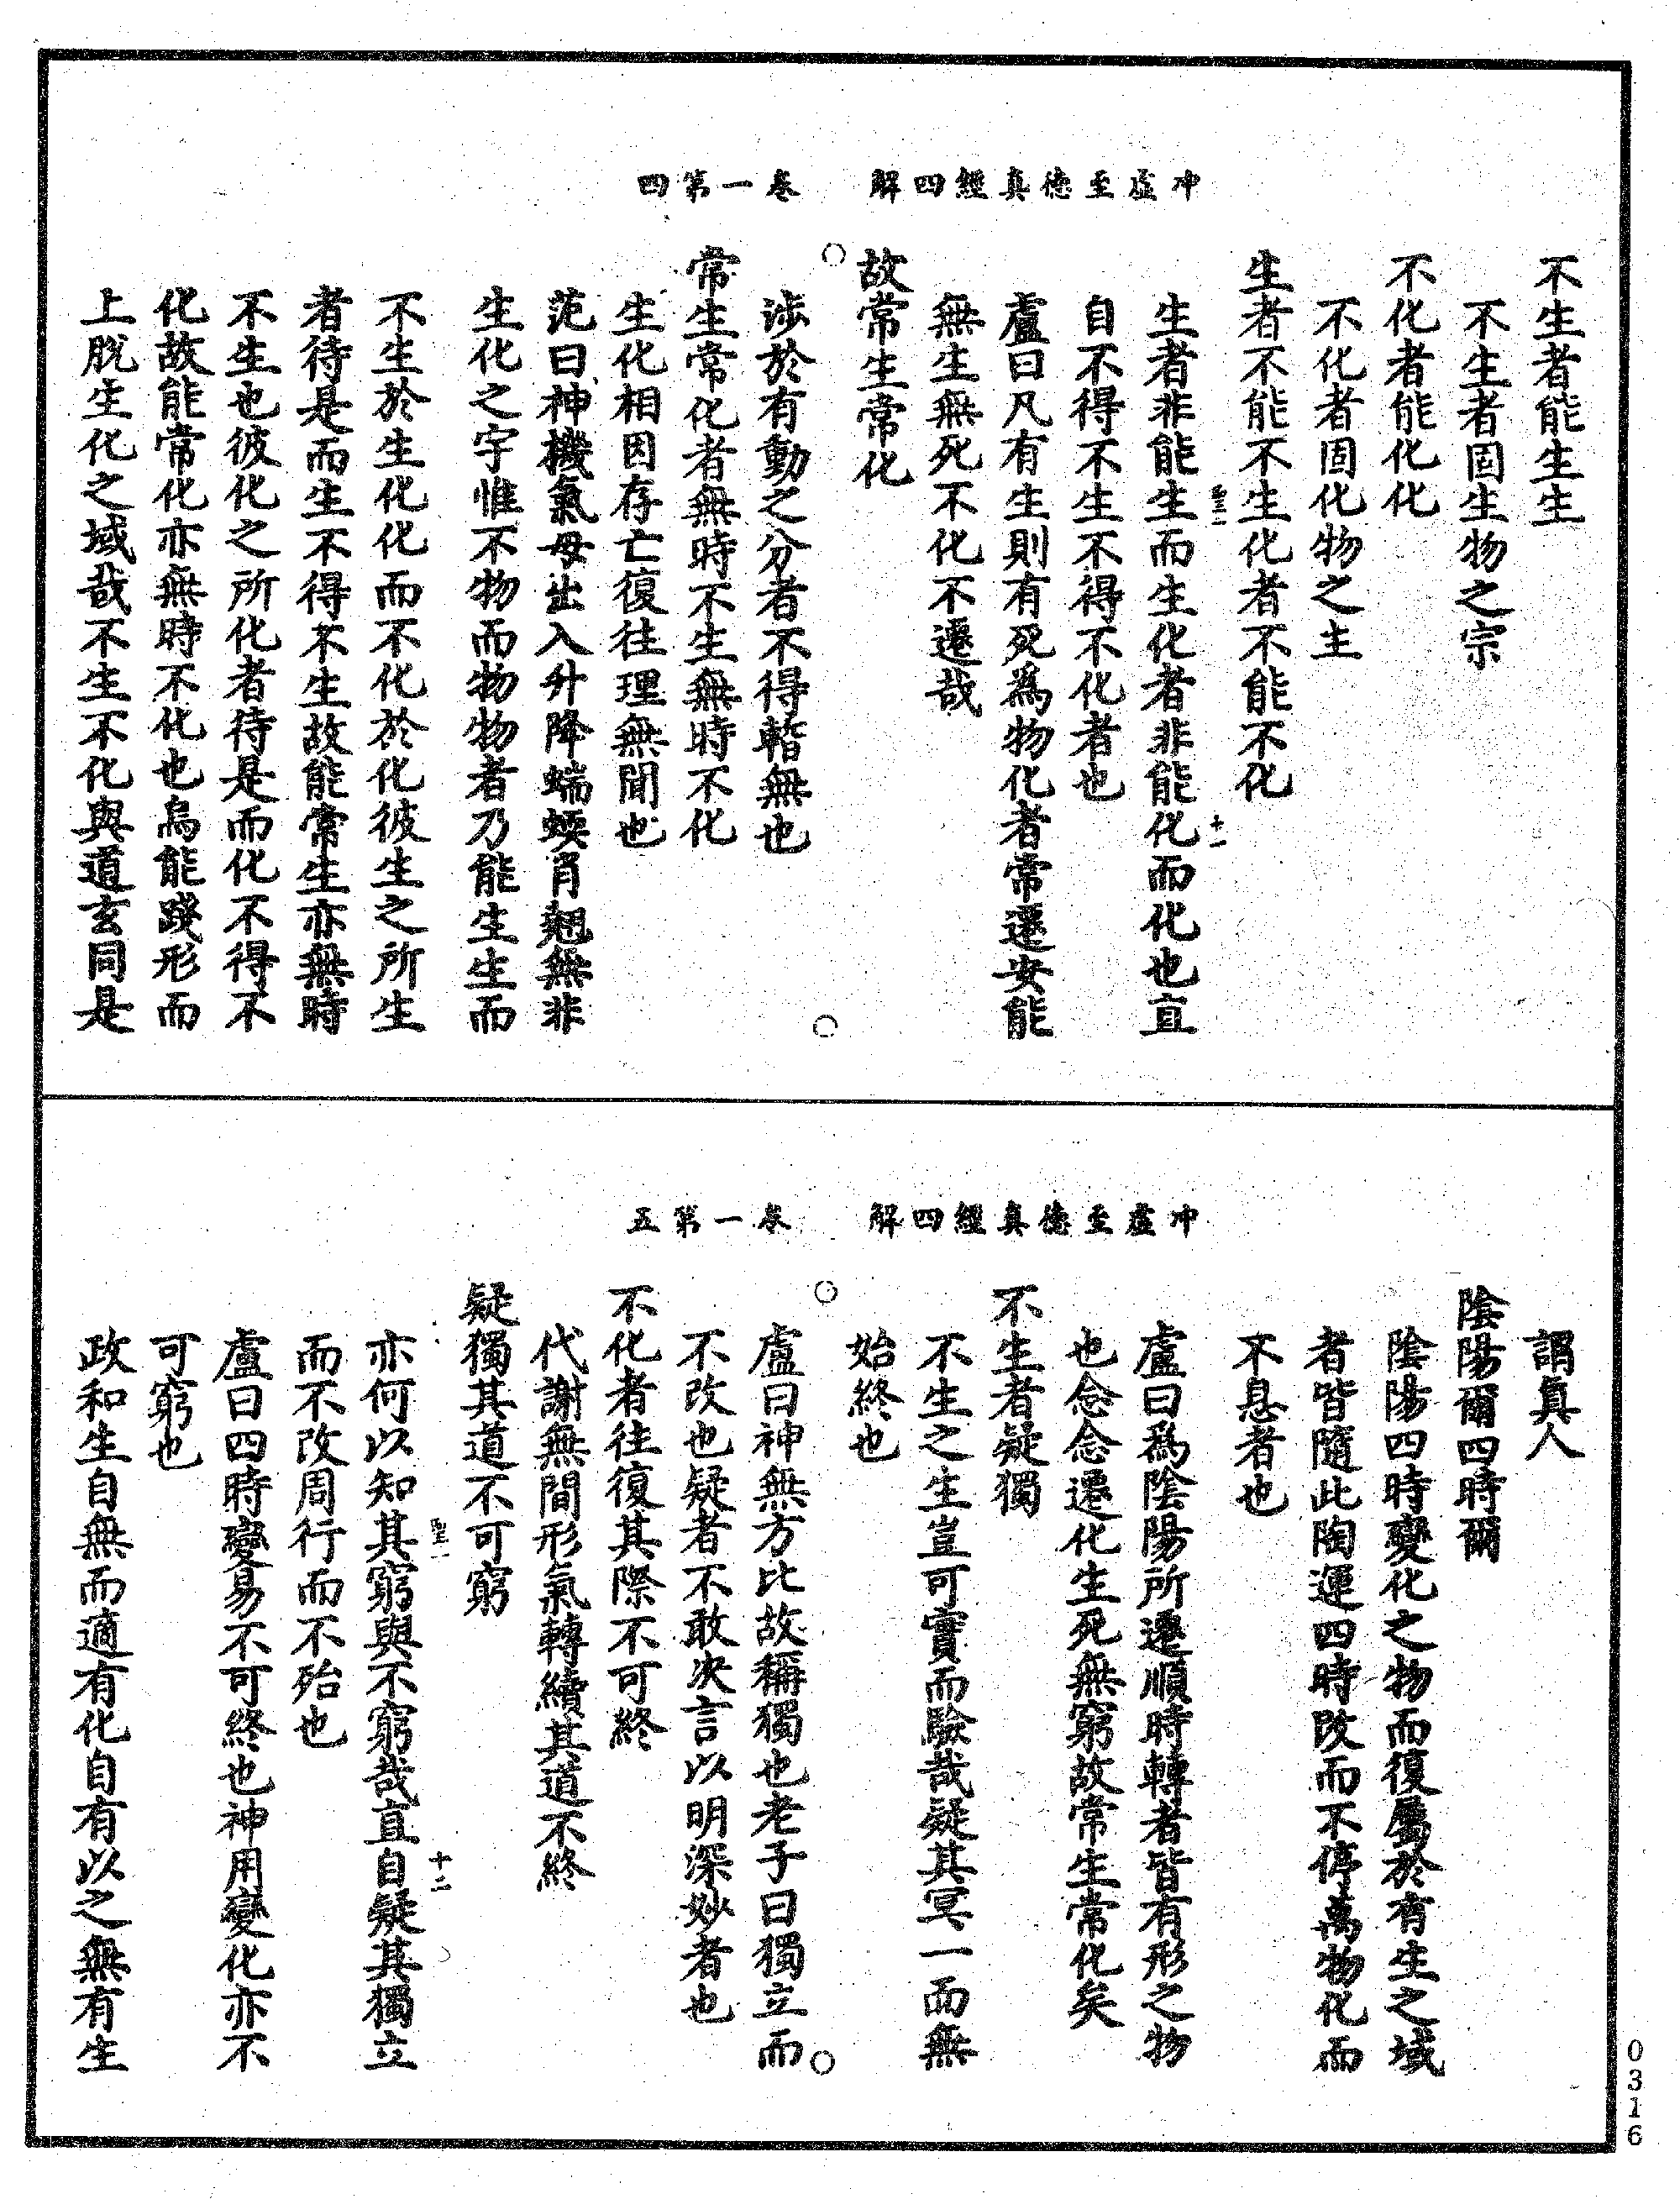 冲虛至德真經四解　卷一第四
不生者能生生
不生者固生物之宗
不化者能化化
不化者固化物之主
生者不能不生化者不能不化
生者非能生而生化者非能化而化也直
自不得不生不得不化者也
盧曰凡有生則有死爲物化者常遷安能
無生無死不化不遷哉
故常生常化
涉於有動之分者不得暫無也
常生常化者無時不生無時不化
生化相因存亡復往理無閒也
范曰神機氣母出入升降蝡蝡肖翹無非
生化之宇惟不物而物物者乃能生生而
不生於生化化而不化於化彼生之所生
者待是而生不得不生故能常生亦無時
不生也彼化之所化者待是而化不得不
化故能常化亦無時不化也烏能踐形而
上脫生化之域哉不生不化與道玄同是
十一
冲虛至德真經四解　卷一第五
謂真人
陰陽爾四時爾
陰陽四時變化之物而復屬於有生之域
者皆隨此陶運四時改而不停萬物化而
不息者也
盧曰爲陰陽所遷順時轉者皆有形之物
也念念遷化生死無窮故常生常化矣
不生者疑獨
不生之生豈可實而驗哉疑其冥一而無
始終也
盧曰神無方比故稱獨也老子曰獨立而
不改也疑者不敢決言以明深妙者也
不化者往復其際不可終
代謝無間形氣轉續其道不終
疑獨其道不可窮
亦何以知其窮與不窮哉直自疑其獨立
而不改周行而不殆也
盧曰四時變易不可終也神用變化亦不
可窮也
政和生自無而適有化自有以之無有生
十二
0316